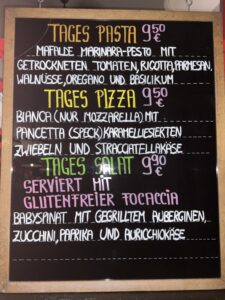 TAGES PASTA 9,50 €
MAFALDE MARINARA-PESTO MIT
GETROCKNETEN TOMATEN, RICOTTA, PARMESAN,
WALNÜSSE, OREGANO UND BASILIKUM
TAGES PIZZA 9,50 €
BIANCA (NUR MOZZARELLA) MIT
PANCETTA (SPECK) KARAMELLIESIERTEN
ZWIEBELN UND STRACCATELLAKÄSE
TAGES SALAT 9,90 €
SERVIERT MIT
GLUTENFREIER FOCACCIA
BABYSPINAT MIT GEGRILLTEM AUBERGINEN,
ZUCCHINI, PAPRIKA UND AURICCHIOKÄSE